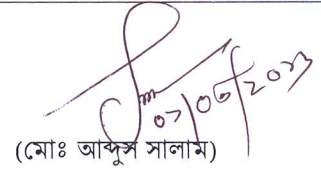 ০১/০৬/২০২৩
(মোঃ আব্দুস সালাম)